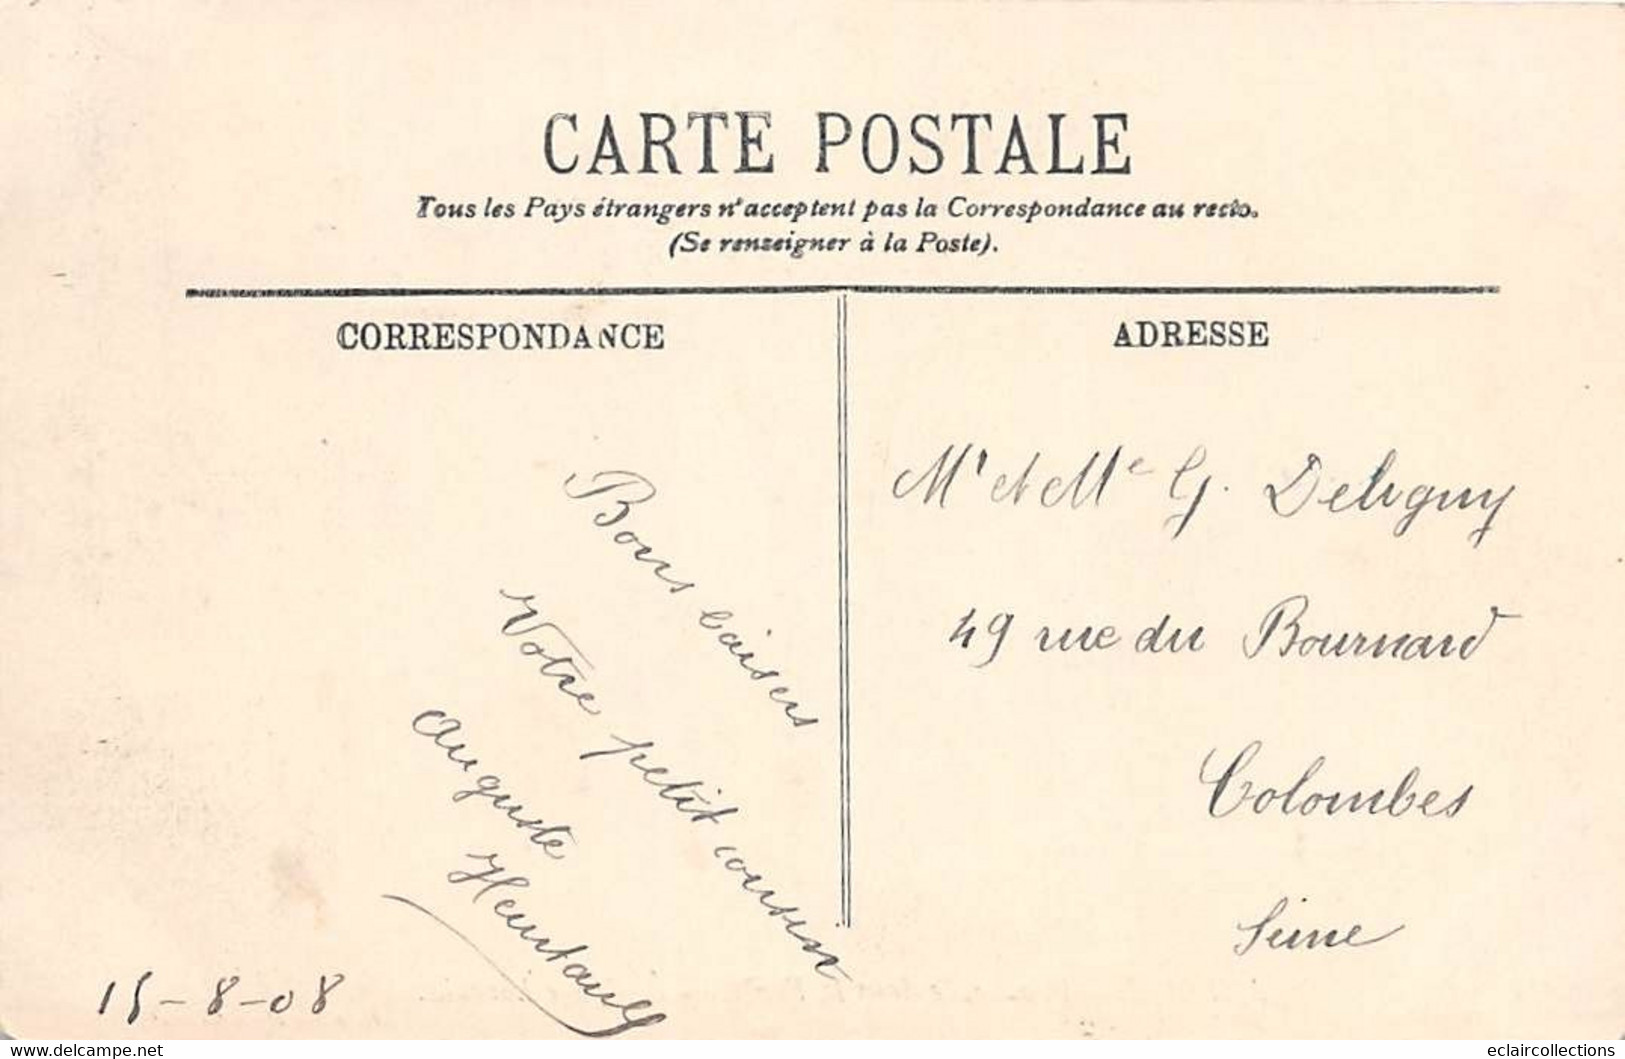 CARTE POSTALE
Tous les Pays étrangers n'acceptent pas la Correspondance au recto.
(Se renseigner à la Poste).
CORRESPONDANCE
Bons baisers
Votre petit cousin
Auguste
15-8-08
ADRESSE
Mr et Me G. Deligny
49 rue du Bournard
Colombes
Seine
www.delcampe.net
eclaircollections